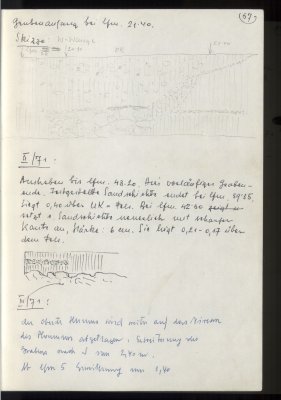 (67)
Grabenanfang bei lfm. 21.40.
Skizze: W-Wange
II/71:
Ausheben bis lfm. 43.20. Das vorläufige Graben-
ende. Sandschichte endet bei lfm. 39.25.
liegt 0,40 über UK = Fels. Bei lfm. 42.50
setzt Sandschichte neuerlich mit scharfer
Kante an, Stärke: 6 cm. Sie liegt 0,21-0,17 über
dem Fels.
III/71:
der obere Humus wird auf das Niveau
des Planums abgetragen; Erweiterung des
Grabens nach S um 2,40 m.
Ab lfm 5 Erweiterung um 1,40